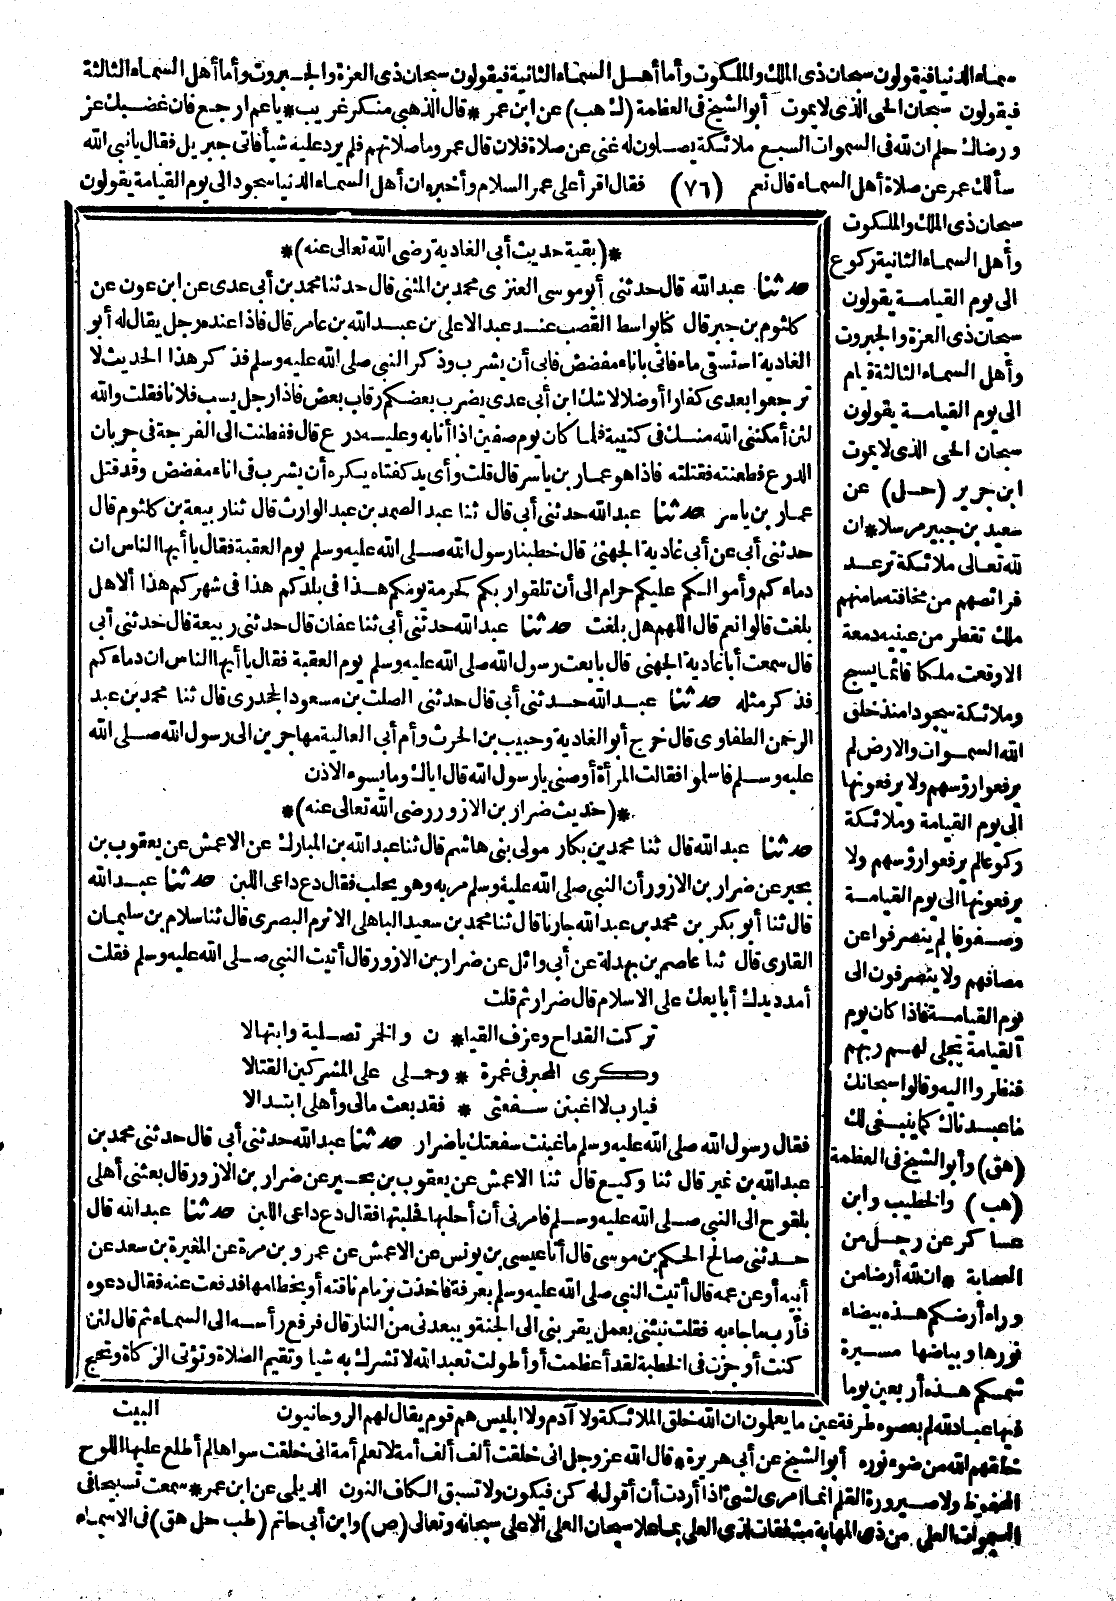 سماء الدنيا فيقولون سبحان ذى الملك والملكوت وأما أهل السماء الثانية فيقولون سبحان ذى العزة والجبروت وأما أهل السماء الثالثة
فيقولون سبحان الحى الذى لا يموت أبو الشيخ فى العظمة (ك هب) عن ابن عمر * قال الذهبى منكر غريب * ياعمر ارجع فان غضبك عز
ورضاك حلم ان لله فى السموات السبع ملائكة يصلون له غنى عن صلاة فلان قال عمر وما صلاتهم فلم يرد عليه شيأ فأتى جبريل فقال يانبى الله
سألك عمر عن صلاة أهل السماء قال نعم (٧٦) فقال اقرأ على عمر السلام وأخبره ان أهل السماء الدنيا سجود الى يوم القيامة يقولون
سبحان ذى الملك والملكوت
وأهل السماء الثانية ركوع
الى يوم القيامة يقولون
سبحان ذى العزة والجبروت
وأهل السماء الثالثة قيام
الى يوم القيامة يقولون
سبحان الحى الذى لا يموت
ابن جرير (حل) عن
سعيد بن جبير مرسلا * ان
لله تعالى ملائكة ترعد
فرائصهم من مخافته مامنهم
ملك تقطر من عينيه دمعة
الا وقعت ملكا قائما يسبح
وملائكة سجودا منذ خلق
الله السموات والارض لم
يرفعوا رؤسهم ولا يرفعونها
الى يوم القيامة وملائكة
ركوعا لم يرفعوا رؤسهم ولا
يرفعونها الى يوم القيامة
وصفوفا لم ينصرفوا عن
مصافهم ولا ينصرفون الى
يوم القيامة فاذا كان يوم
القيامة تجلى لهم ربهم
فنظروا اليه وقالوا سبحانك
ما عبدناك كما ينبغى لك
(هق) وأبو الشيخ فى العظمة
(هب) والخطيب وابن
عساكر عن رجل من
الصحابة * ان لله أرضا من
وراء أرضكم هذه بيضاء
نورها وبياضها مسيرة
شمسكم هذه أربعين يوما
*(بقية حديث أبى الغادية رضى الله تعالى عنه)*
حدثنا عبد الله قال حدثنى أبو موسى العنزى محمد بن المثنى قال حدثنا محمد بن أبى عدى عن ابن عون عن
كلثوم بن جبر قال كنا بواسط القصب عند عبد الاعلى بن عبد الله بن عامر قال فاذا عنده رجل يقال له أبو
الغادية استسقى ماء فأتى باناء مفضض فأبى أن يشرب وذكر النبى صلى الله عليه وسلم فذكر هذا الحديث لا
ترجعوا بعدى كفارا أو ضلالا شك ابن أبى عدى يضرب بعضكم رقاب بعض فاذا رجل يسب فلانا فقلت والله
لئن أمكننى الله منك فى كتيبة فلما كان يوم صفين اذا أنا به وعليه درع قال ففطنت الى الفرجة فى جربان
الدرع فطعنته فقتلته فاذا هو عمار بن ياسر قال قلت وأى يد كفتاه يكره أن يشرب فى اناء مفضض وقد قتل
عمار بن ياسر حدثنا عبد الله حدثنى أبى قال ثنا عبد الصمد بن عبد الوارث قال ثنا ربيعة بن كلثوم قال
حدثنى أبى عن أبى غادية الجهنى قال خطبنا رسول الله صلى الله عليه وسلم يوم العقبة فقال يا أيها الناس ان
دماءكم وأموالكم عليكم حرام الى أن تلقوا ربكم كحرمة يومكم هذا فى بلدكم هذا فى شهركم هذا ألا هل
بلغت قالوا نعم قال اللهم هل بلغت حدثنا عبد الله حدثنى أبى ثنا عفان قال حدثنى ربيعة قال حدثنى أبى
قال سمعت أبا غادية الجهنى قال بايعت رسول الله صلى الله عليه وسلم يوم العقبة فقال يا أيها الناس ان دماءكم
فذكر مثله حدثنا عبد الله حدثنى أبى قال حدثنى الصلت بن مسعود الجحدرى قال ثنا محمد بن عبد
الرحمن الطفاوى قال خرج أبو الغادية وحبيب بن الحرث وأم أبى العالية مهاجرين الى رسول الله صلى الله
عليه وسلم فأسلموا فقالت المرأة أوصنى يا رسول الله قال اياك وما يسوء الاذن
*(حديث ضرار بن الازور رضى الله تعالى عنه)*
حدثنا عبد الله قال ثنا محمد بن بكار مولى بنى هاشم قال ثنا عبد الله بن المبارك عن الاعمش عن يعقوب بن
بحير عن ضرار بن الازور أن النبى صلى الله عليه وسلم مر به وهو يحلب فقال دع داعى اللبن حدثنا عبد الله
قال ثنا أبو بكر بن محمد بن عبد الله جارنا قال ثنا محمد بن سعيد الباهلى الاثرم البصرى قال ثنا سلام بن سليمان
القارى قال ثنا عاصم بن بهدلة عن أبى وائل عن ضرار بن الازور قال أتيت النبى صلى الله عليه وسلم فقلت
أمدد يدك أبايعك على الاسلام قال ضرار ثم قلت
تركت القداح وعزف القيا * ن والخمر تصلية وابتهالا
وكرى المحبر فى غمرة * وحملى على المشركين القتالا
فيارب لا اغبنن سفعتى * فقد بعت مالى وأهلى ابتدالا
فقال رسول الله صلى الله عليه وسلم ما غبنت سفعتك يا ضرار حدثنا عبد الله حدثنى أبى قال حدثنى محمد بن
عبد الله بن نمير قال ثنا وكيع قال ثنا الاعمش عن يعقوب بن بحير عن ضرار بن الازور قال بعثنى أهلى
بلقوح الى النبى صلى الله عليه وسلم فامرنى أن أحلبها فحلبتها فقال دع داعى اللبن حدثنا عبد الله قال
حدثنى صالح الحكم بن موسى قال أنا عيسى بن يونس عن الاعمش عن عمرو بن مرة عن المغيرة بن سعد عن
أبيه أو عن عمه قال أتيت النبى صلى الله عليه وسلم بعرفة فاخذت بزمام ناقته أو بخطامها فدفعت عنه فقال دعوه
فأرب ما جاء به فقلت نبئنى بعمل يقربنى الى الجنة ويبعدنى من النار قال فرفع رأسه الى السماء ثم قال لئن
كنت أوجزت فى الخطبة لقد أعظمت أو أطولت تعبد الله لا تشرك به شيأ وتقيم الصلاة وتؤتى الزكاة وتحج
البيت
فيها عباد لله لم يعصوه طرفة عين ما يعلمون ان الله خلق الملائكة ولا آدم ولا ابليس هم قوم يقال لهم الروحانيون
خلقهم الله من ضوء نوره أبو الشيخ عن أبى هريرة * قال الله عز وجل انى خلقت ألف ألف أمة لا تعلم أمة انى خلقت سواها لم أطلع عليها اللوح
المحفوظ ولا صرير القلم انما امرى لشئ اذا أردت أن أقول له كن فيكون ولا تسبق الكاف النون الديلمى عن ابن عمر * سمعت تسبيحا فى
السموات العلى من ذى المهابة مشفقات لذى العلى بما علا سبحان العلى الاعلى سبحانه وتعالى (ص) وابن أبى حاتم (طب حل هق) فى الاسماء